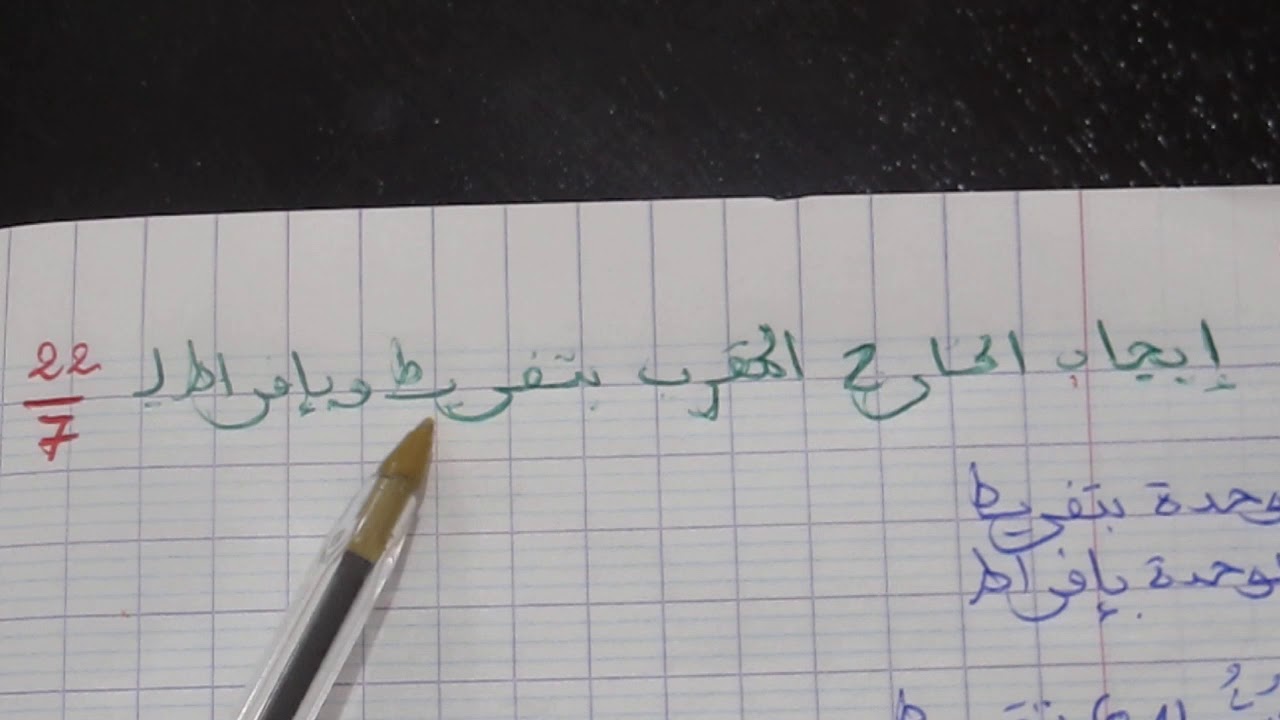 إيجاب الخارج المقرب بتفريط وبإفراط ل 22/7
وحدة بتفريط
لوحدة بإفراط